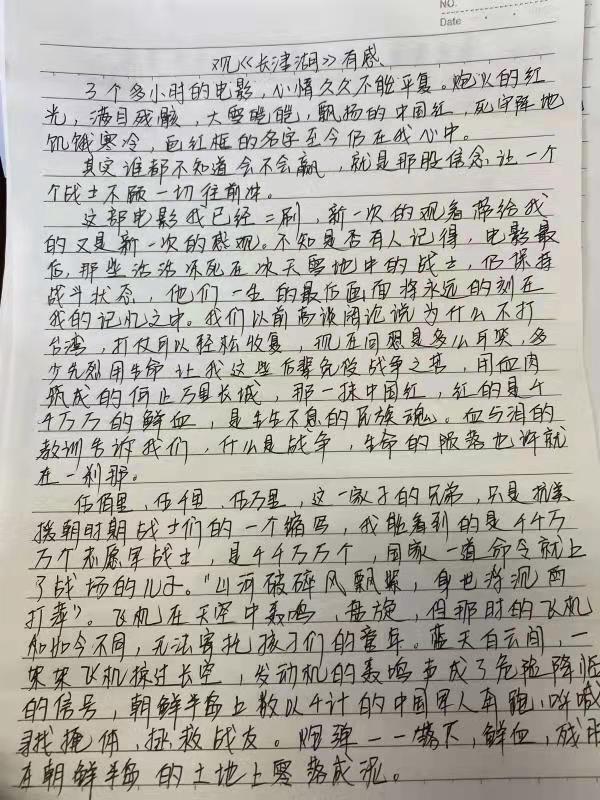 NO.
Date
观《长津湖》有感
3个多小时的电影，心情久久不能平复。炮火的红
光，满目残骸，大雪皑皑，飘扬的中国红，死守阵地
饥饿寒冷，白红框的名字至今仍在我心中。
其实谁都不知道会不会赢，就是那股信念让一个
个战士不顾一切往前冲。
这部电影我已经二刷，新一次的观看带给我
的又是新一次的感观。不知是否有人记得，电影最
后，那些活活冻死在冰天雪地中的战士，仍保持
战斗状态，他们一生的最后画面将永远的刻在
我的记忆之中。我们以前高谈阔论说为什么不打
台湾，打仗可以轻松收复，现在回想是多么可笑，多
少先烈用生命让我这些后辈免役战争之苦，用血肉
筑成的何止万里长城，那一抹中国红，红的是千
千万万的鲜血，是生生不息的民族魂。血与泪的
教训告诉我们，什么是战争，生命的陨落也许就
在一刹那。
伍佰里、伍千里、伍万里，这一家子的兄弟，只是抗美
援朝时期战士们的一个缩写，我能看到的是千千万
万个志愿军战士，是千千万万个，国家一道命令就上
了战场的儿子。“山河破碎风飘絮，身世浮沉雨
打萍”。飞机在天空中轰鸣，盘旋，但那时的飞机
和如今不同，无法寄托孩子们的童年。蓝天白云间，一
架架飞机掠过长空，发动机的轰鸣变成了危险降临
的信号，朝鲜半岛上数以千计的中国军人奔跑、呼喊
寻找掩体，拯救战友。炮弹一一落下，鲜血，残肢
在朝鲜半岛的土地上零落成泥。